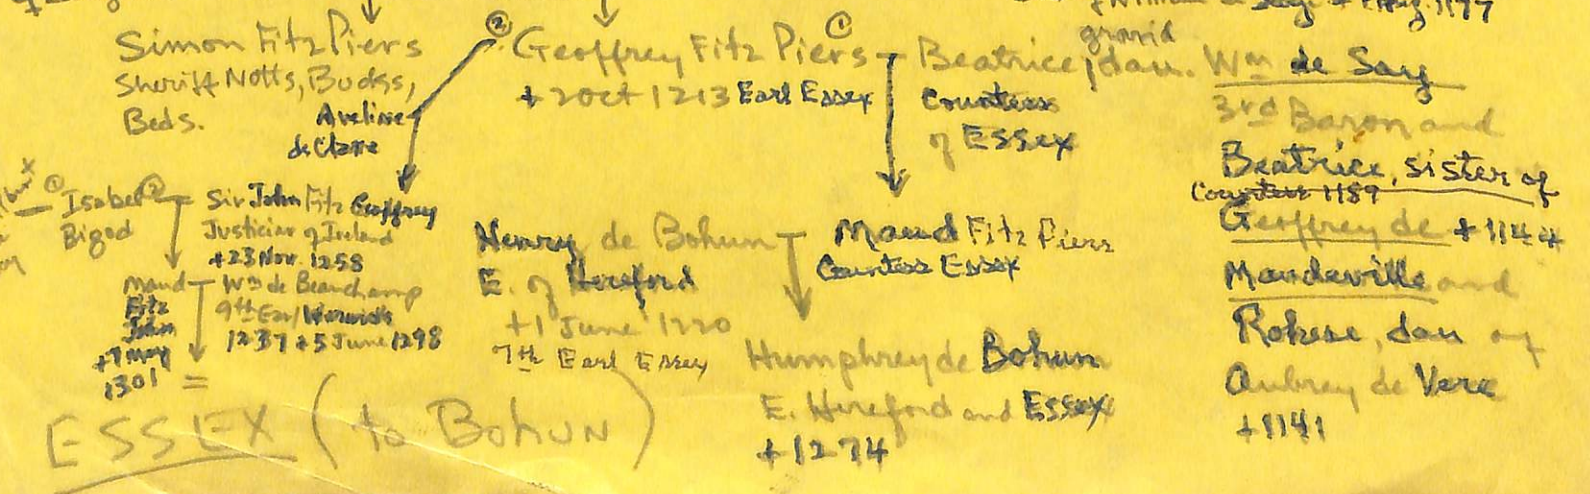 + Aug. 1197
Simon Fitz Piers
Sheriff Notts, Bucks,
Beds.
② Geoffrey Fitz Piers ①
+ 2 Oct 1213 Earl Essex
Aveline
de Clare
Beatrice, dau.
grand
Countess
of Essex
Wm de Say
3rd Baron and
Beatrice, sister of
Countess 1189
Geoffrey de + 1144
Mandeville and
Rohese, dau of
Aubrey de Vere
+ 1141
① Isabel ②
Bigod
Sir John Fitz Geoffrey
Justiciar of Ireland
+ 23 Nov. 1258
Maud
Fitz
John
+ 7 May
1301 =
Wm de Beauchamp
9th Earl Warwick
1237 + 5 June 1298
Henry de Bohun
E. of Hereford
+ 1 June 1220
7th Earl Essex
Maud Fitz Piers
Countess Essex
Humphrey de Bohun
E. Hereford and Essex
+ 1274
ESSEX (to BOHUN)